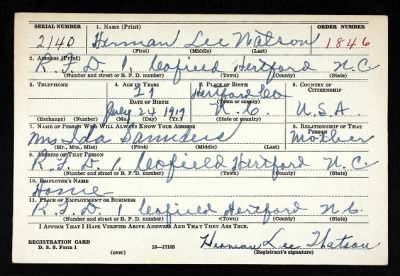 SERIAL NUMBER 1. NAME (Print) ORDER NUMBER
2140 Herman Lee Watson 1846
(First) (Middle) (Last)
2. ADDRESS (Print)
R.F.D 1 Cofield Hertford N.C.
(Number and street or R. F. D. number) (Town) (County) (State)
3. TELEPHONE 4. AGE IN YEARS 5. PLACE OF BIRTH 6. COUNTRY OF CITIZENSHIP
Hertford Co
DATE OF BIRTH (Town) (County)
July 24 N.C. U.S.A.
(Exchange) (Number) (Mo.) (Day) (Yr.) (State or country)
7. NAME OF PERSON WHO WILL ALWAYS KNOW YOUR ADDRESS 8. RELATIONSHIP OF THAT PERSON
Mrs Ida Saunders Mother
(Mr., Mrs., Miss) (First) (Middle) (Last)
9. ADDRESS OF THAT PERSON
R.F.D 1 Cofield Hertford N.C.
(Number and street or R. F. D. number) (Town) (County) (State)
10. EMPLOYER'S NAME
Home
11. PLACE OF EMPLOYMENT OR BUSINESS
R.F.D 1 Cofield Hertford N.C.
(Number and street or R. F. D. number) (Town) (County) (State)
I AFFIRM THAT I HAVE VERIFIED ABOVE ANSWERS AND THAT THEY ARE TRUE.
REGISTRATION CARD
D. S. S. Form 1 (over) 16—17105 Herman Lee Watson
(Registrant's signature)